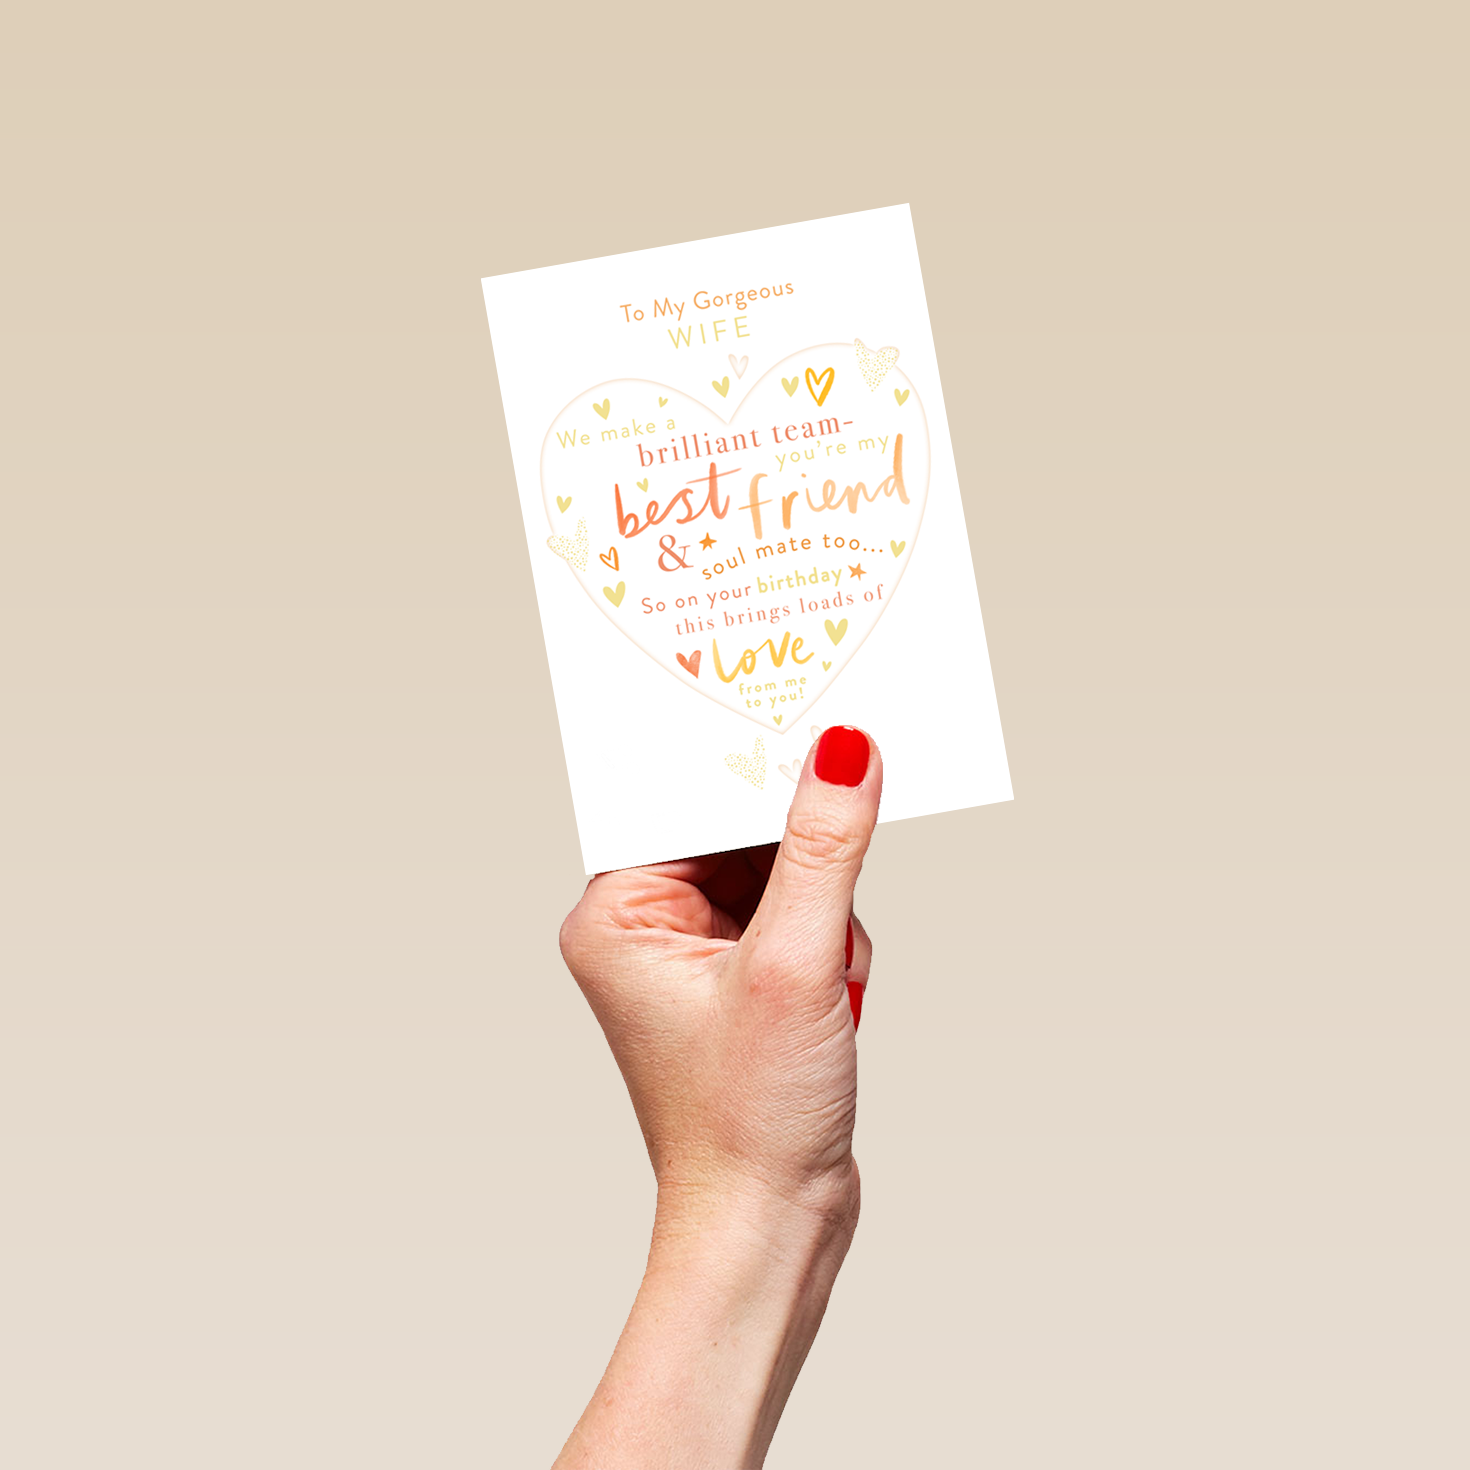 To My Gorgeous
WIFE
We make a
brilliant team-
you're my
best friend
& soul mate too...
So on your birthday
this brings loads of
love
from me
to you!